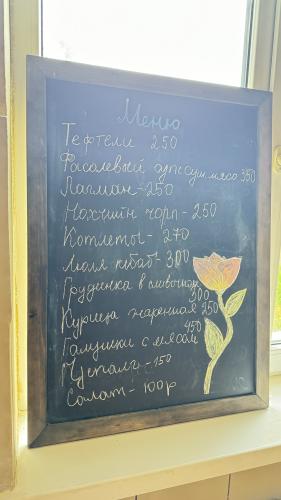 Меню
Тефтели 250
Фасолевый суп суш.мясо 350
Лагман - 250
Нохчийн чорп - 250
Котлеты - 270
Люля кебаб - 300
Грудинка в сливочном
300
Курица жаренная 250
450
Галушки с мясом
Чуталг - 150
Салат - 100р